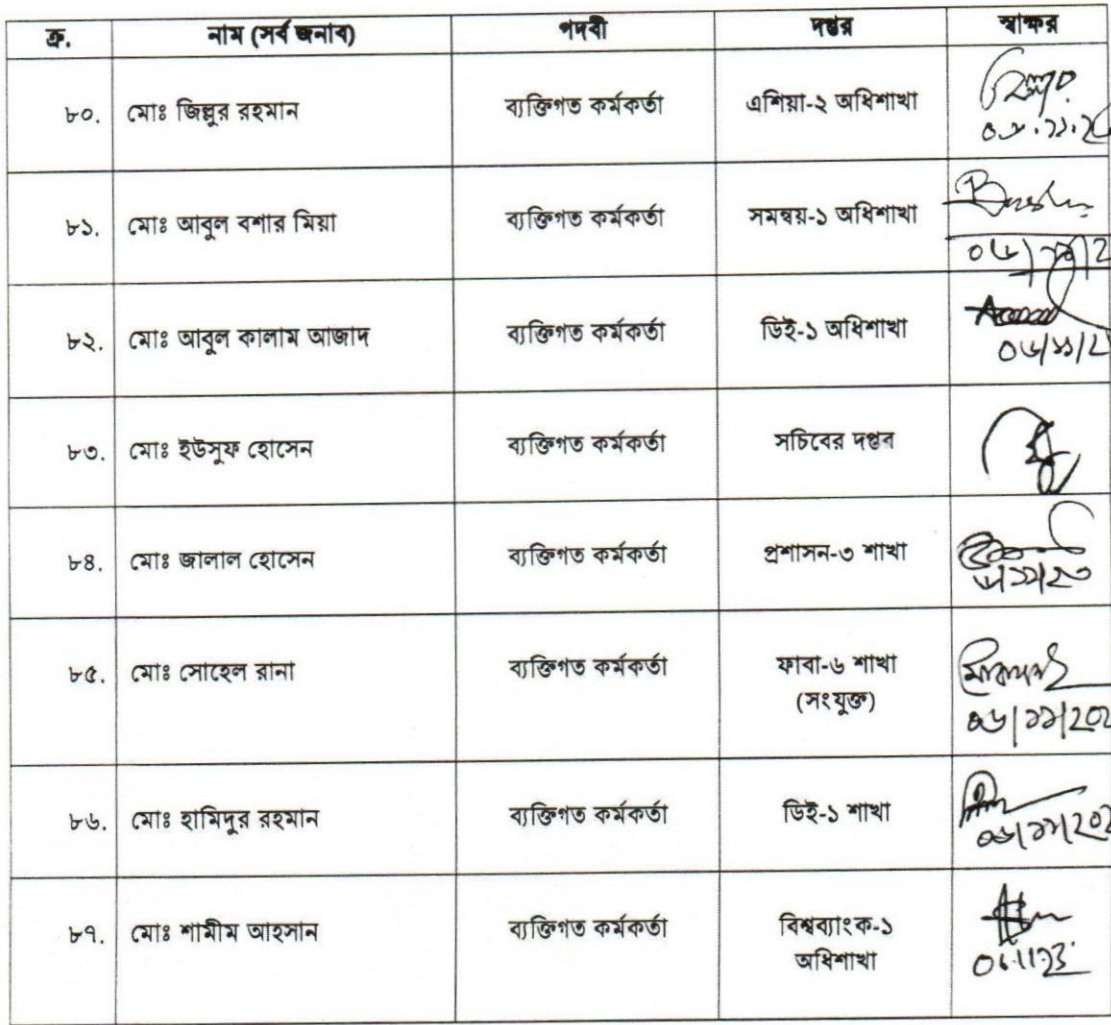 ক্র. নাম (সর্ব জনাব) পদবী দপ্তর স্বাক্ষর
৮০. মোঃ জিল্লুর রহমান ব্যক্তিগত কর্মকর্তা এশিয়া-২ অধিশাখা
৮১. মোঃ আবুল বশার মিয়া ব্যক্তিগত কর্মকর্তা সমন্বয়-১ অধিশাখা
৮২. মোঃ আবুল কালাম আজাদ ব্যক্তিগত কর্মকর্তা ডিই-১ অধিশাখা
৮৩. মোঃ ইউসুফ হোসেন ব্যক্তিগত কর্মকর্তা সচিবের দপ্তব
৮৪. মোঃ জালাল হোসেন ব্যক্তিগত কর্মকর্তা প্রশাসন-৩ শাখা
৮৫. মোঃ সোহেল রানা ব্যক্তিগত কর্মকর্তা ফাবা-৬ শাখা
(সংযুক্ত)
৮৬. মোঃ হামিদুর রহমান ব্যক্তিগত কর্মকর্তা ডিই-১ শাখা
৮৭. মোঃ শামীম আহসান ব্যক্তিগত কর্মকর্তা বিশ্বব্যাংক-১
অধিশাখা
06.11.23